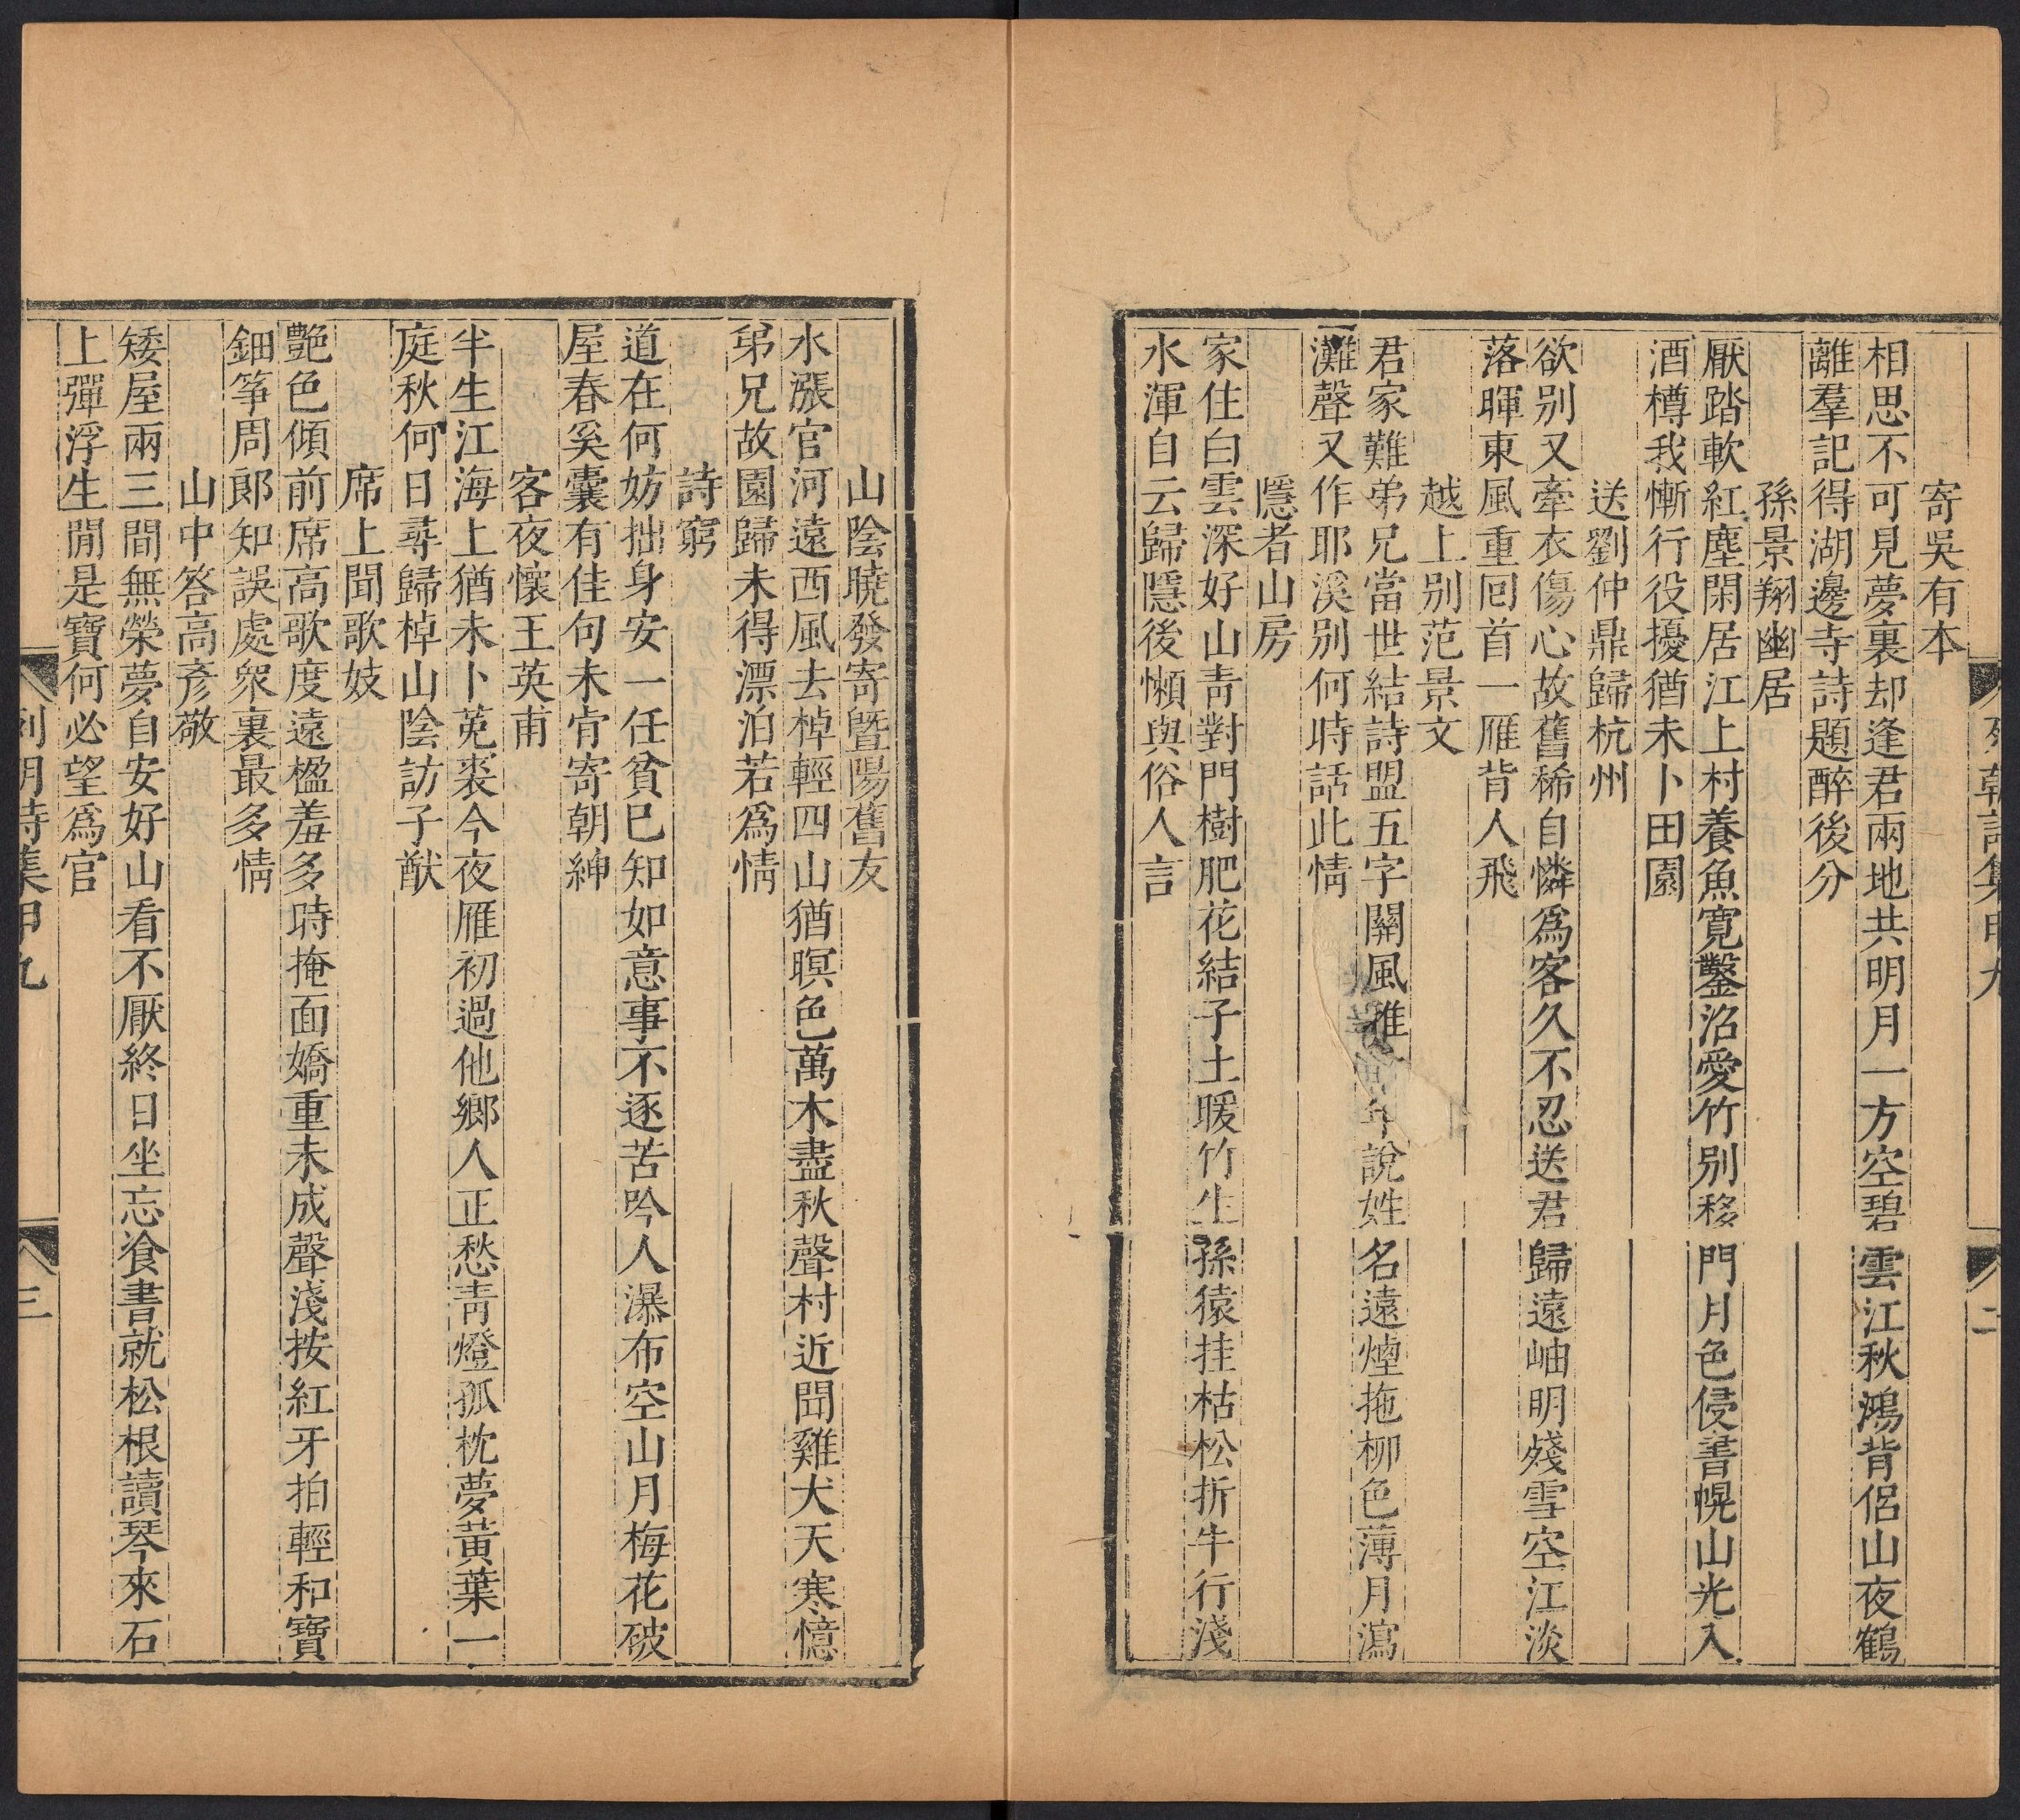 寄吳有本
相思不可見夢裏却逢君兩地共明月一方空碧雲江秋鴻背侶山夜鶴
離羣記得湖邊寺詩題醉後分
孫景翔幽居
厭踏軟紅塵閑居江上村養魚寬鑿沼愛竹別移門月色侵書幌山光入
酒樽我慚行役擾猶未卜田園
送劉仲鼎歸杭州
欲別又牽衣傷心故舊稀自憐爲客久不忍送君歸遠岫明殘雪空江淡
落暉東風重回首一雁背人飛
越上別范景文
君家難弟兄當世結詩盟五字關風雅年說姓名遠煙拖柳色薄月瀉
灘聲又作耶溪別何時話此情
隱者山房
家住白雲深好山靑對門樹肥花結子土暖竹生孫猿挂枯松折牛行淺
水渾自云歸隱後懶與俗人言
山陰曉發寄暨陽舊友
水漲官河遠西風去棹輕四山猶暝色萬木盡秋聲村近聞雞犬天寒憶
弟兄故園歸未得漂泊若爲情
詩窮
道在何妨拙身安一任貧已知如意事不逐苦吟人瀑布空山月梅花破
屋春奚囊有佳句未肯寄朝紳
客夜懷王英甫
半生江海上猶未卜菟裘今夜雁初過他鄉人正愁靑燈孤枕夢黃葉一
庭秋何日尋歸棹山陰訪子猷
席上聞歌妓
艷色傾前席高歌度遠楹羞多時掩面嬌重未成聲淺按紅牙拍輕和寶
鈿筝周郞知誤處衆裏最多情
山中答高彥敬
矮屋兩三間無榮夢自安好山看不厭終日坐忘飡書就松根讀琴來石
上彈浮生閒是寶何必望爲官
列朝詩集甲九
三